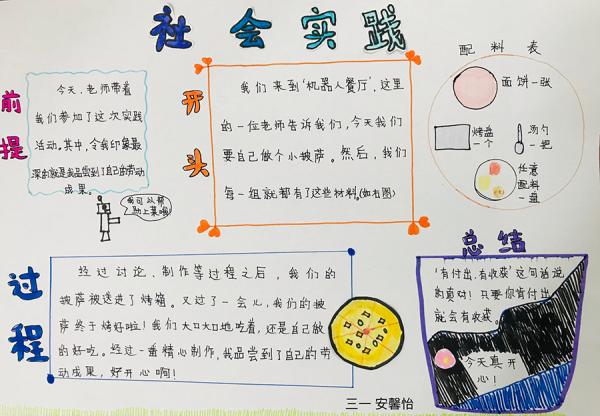 社会实践
前提
今天,老师带着
我们参加了这次实践
活动。其中,令我印象最
深的就是我品尝到了自己的劳动
成果。
我可以帮
助上菜哦!
开头
我们来到‘机器人餐厅’,这里
的一位老师告诉我们,今天我们
要自己做个小披萨。然后,我们
每一组就都有了这些材料。(如右图)
配料表
面饼一张
烤盘
一个
汤勺
一把
任意
配料
一盘
过程
经过讨论、制作等过程之后,我们的
披萨被送进了烤箱。又过了一会儿,我们的披
萨终于烤好啦!我们大口大口地吃着,还是自己做
的好吃。经过一番精心制作,我品尝到了自己的劳
动成果,好开心啊!
总结
‘有付出,有收获’这句话说
的真对!只要你肯付出
就会有收获。
今天真开
心!
三一 安馨怡